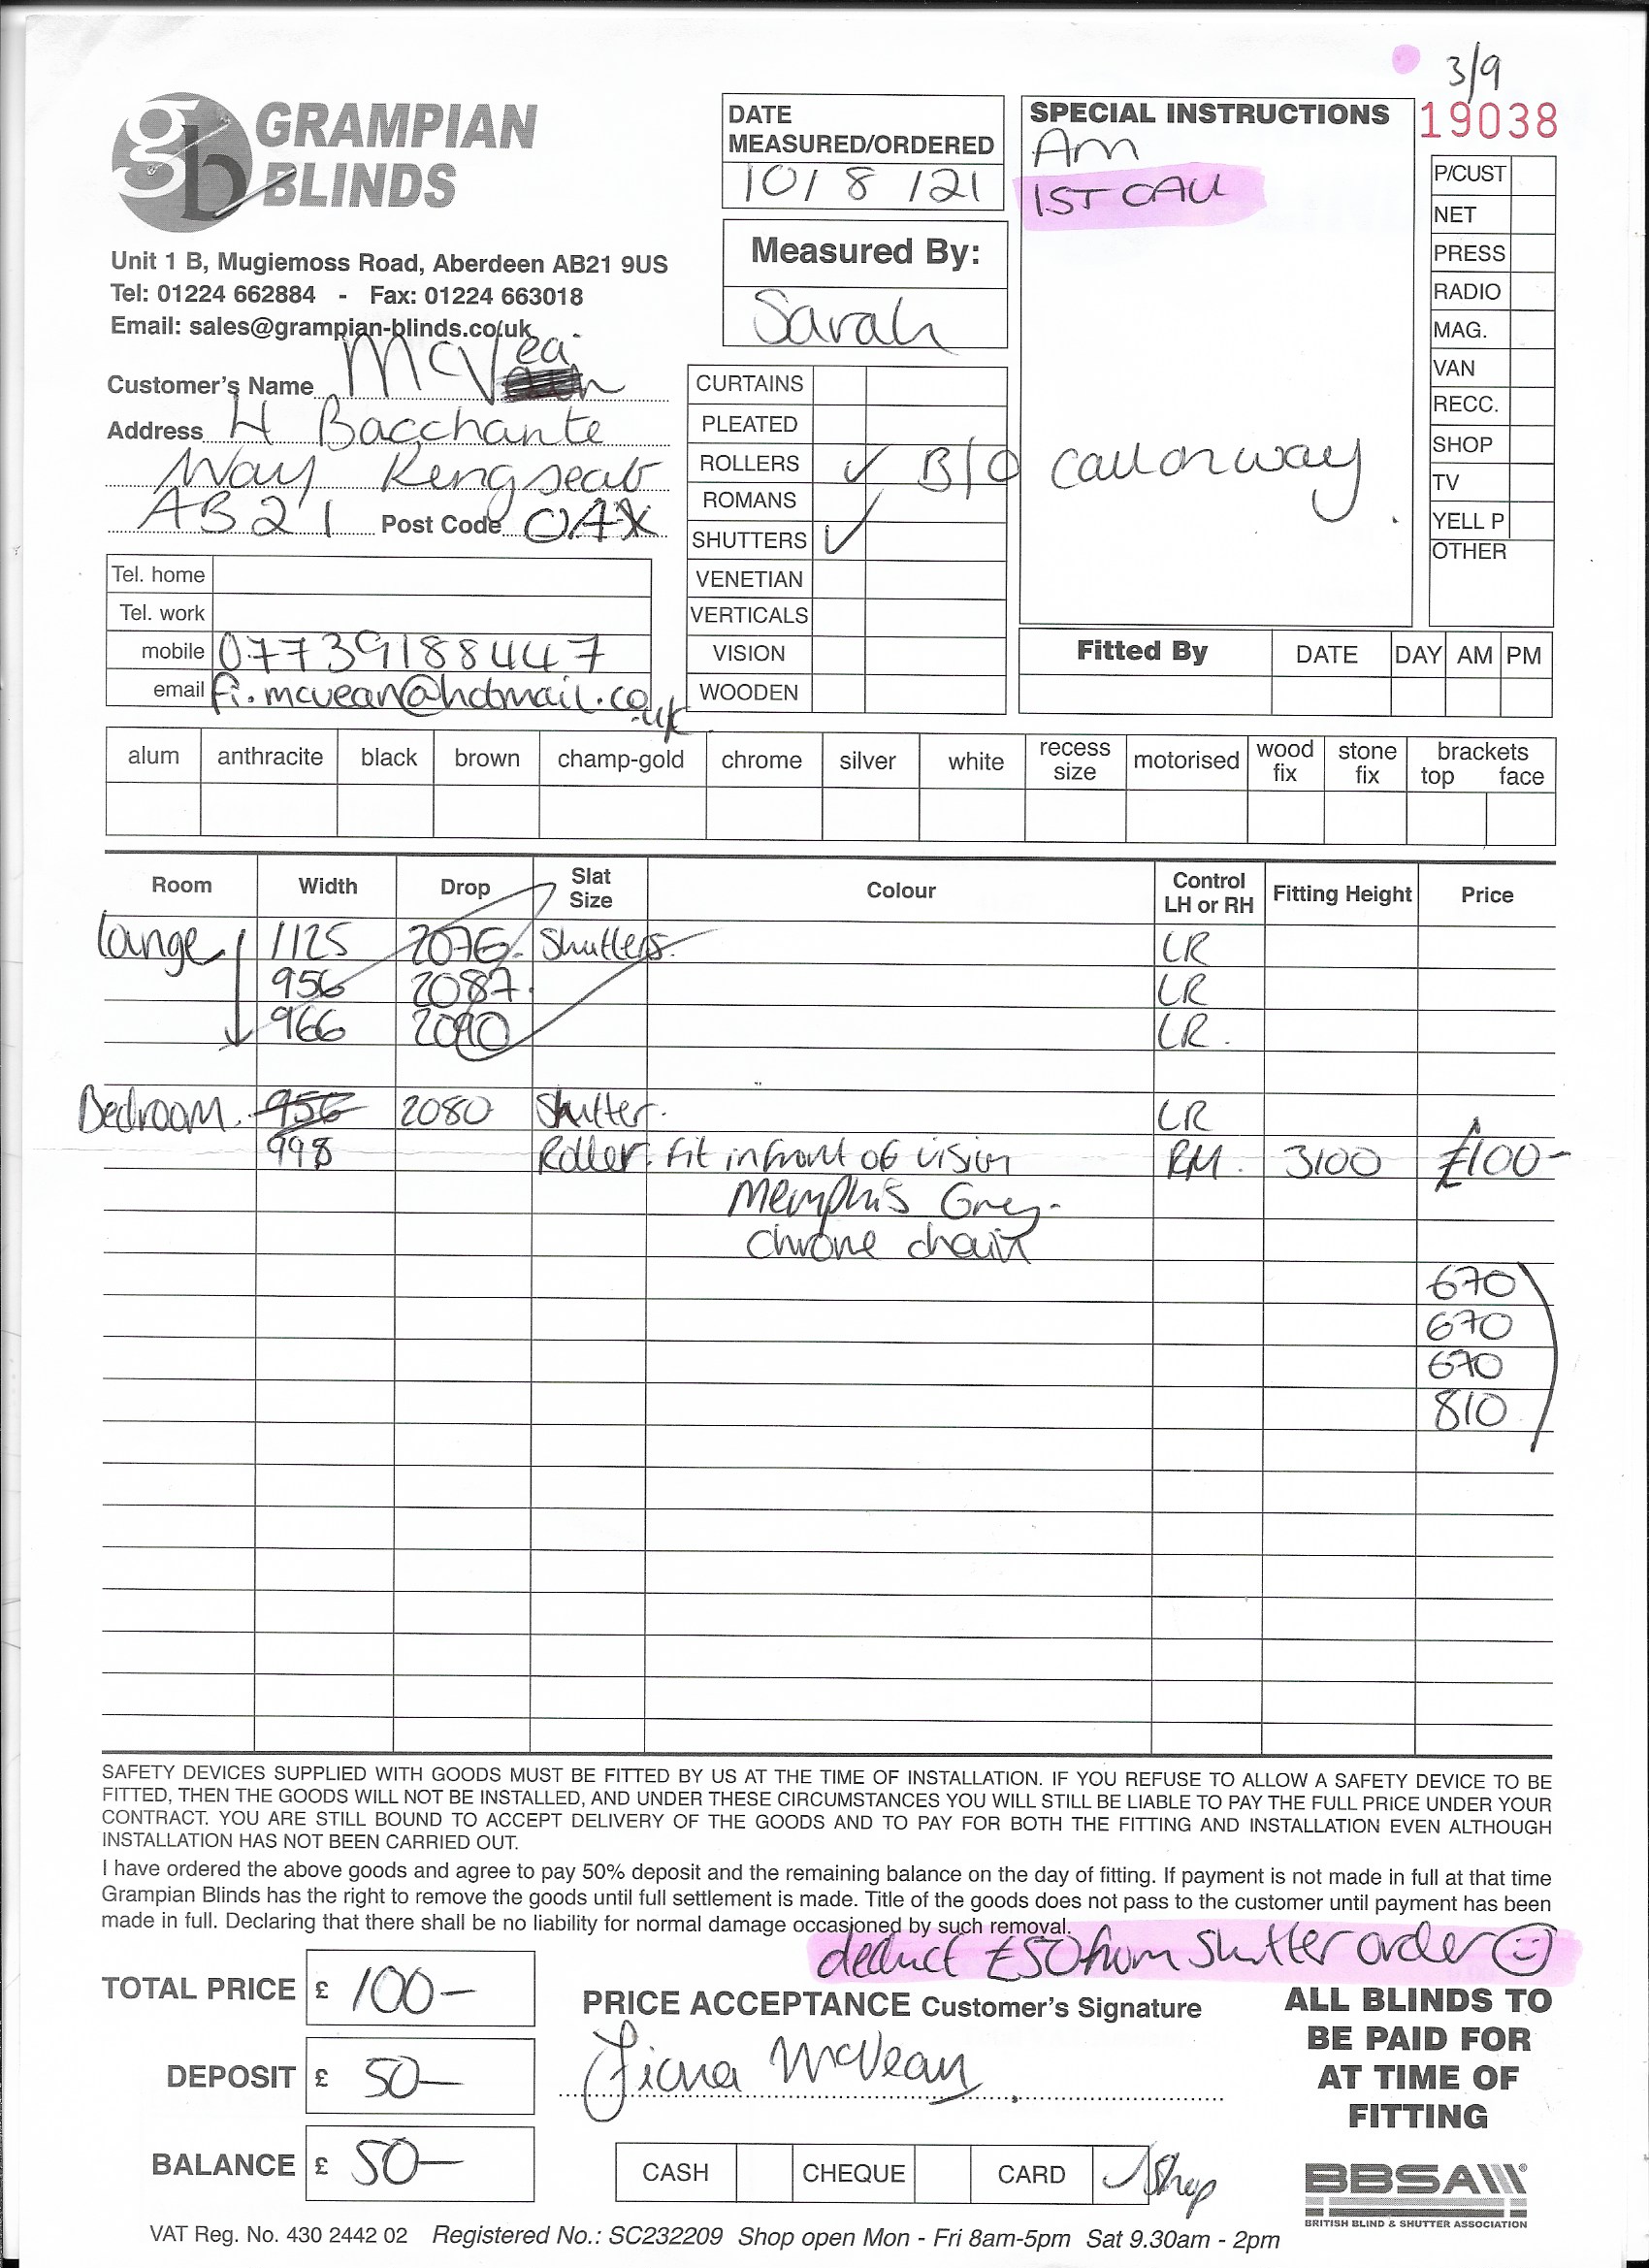 3/9
19038
GRAMPIAN
BLINDS
gb
Unit 1 B, Mugiemoss Road, Aberdeen AB21 9US
Tel: 01224 662884 - Fax: 01224 663018
Email: sales@grampian-blinds.co.uk
DATE
MEASURED/ORDERED
10/8/21
Measured By:
Sarah
SPECIAL INSTRUCTIONS
Am
1ST CALL
call on way
P/CUST
NET
PRESS
RADIO
MAG.
VAN
RECC.
SHOP
TV
YELL P
OTHER
Customer's Name McVean
Address 4 Bacchante
Way Kingseat
AB21 Post Code 0AX
Tel. home
Tel. work
mobile 07739188447
email fi.mcvean@hotmail.co.uk
CURTAINS
PLEATED
ROLLERS ✓ B/O
ROMANS
SHUTTERS ✓
VENETIAN
VERTICALS
VISION
WOODEN
Fitted By DATE DAY AM PM
alum anthracite black brown champ-gold chrome silver white recess size motorised wood fix stone fix brackets top face
Room Width Drop Slat Size Colour Control LH or RH Fitting Height Price
Lounge 1125 2076 Shutters LR
956 2087 LR
966 2090 LR.
Bedroom. 956 2080 Shutter. LR
998 Roller. fit infront of vision RM. 3100 £100-
Memphis Grey.
Chrome chain
670
670
670
810
SAFETY DEVICES SUPPLIED WITH GOODS MUST BE FITTED BY US AT THE TIME OF INSTALLATION. IF YOU REFUSE TO ALLOW A SAFETY DEVICE TO BE
FITTED, THEN THE GOODS WILL NOT BE INSTALLED, AND UNDER THESE CIRCUMSTANCES YOU WILL STILL BE LIABLE TO PAY THE FULL PRICE UNDER YOUR
CONTRACT. YOU ARE STILL BOUND TO ACCEPT DELIVERY OF THE GOODS AND TO PAY FOR BOTH THE FITTING AND INSTALLATION EVEN ALTHOUGH
INSTALLATION HAS NOT BEEN CARRIED OUT.
I have ordered the above goods and agree to pay 50% deposit and the remaining balance on the day of fitting. If payment is not made in full at that time
Grampian Blinds has the right to remove the goods until full settlement is made. Title of the goods does not pass to the customer until payment has been
made in full. Declaring that there shall be no liability for normal damage occasioned by such removal.
deduct £50 from Shutter order
TOTAL PRICE £ 100-
DEPOSIT £ 50-
BALANCE £ 50-
PRICE ACCEPTANCE Customer's Signature
Fiona McVean
CASH CHEQUE CARD ✓ Shop
ALL BLINDS TO
BE PAID FOR
AT TIME OF
FITTING
BBSA
BRITISH BLIND & SHUTTER ASSOCIATION
VAT Reg. No. 430 2442 02 Registered No.: SC232209 Shop open Mon - Fri 8am-5pm Sat 9.30am - 2pm